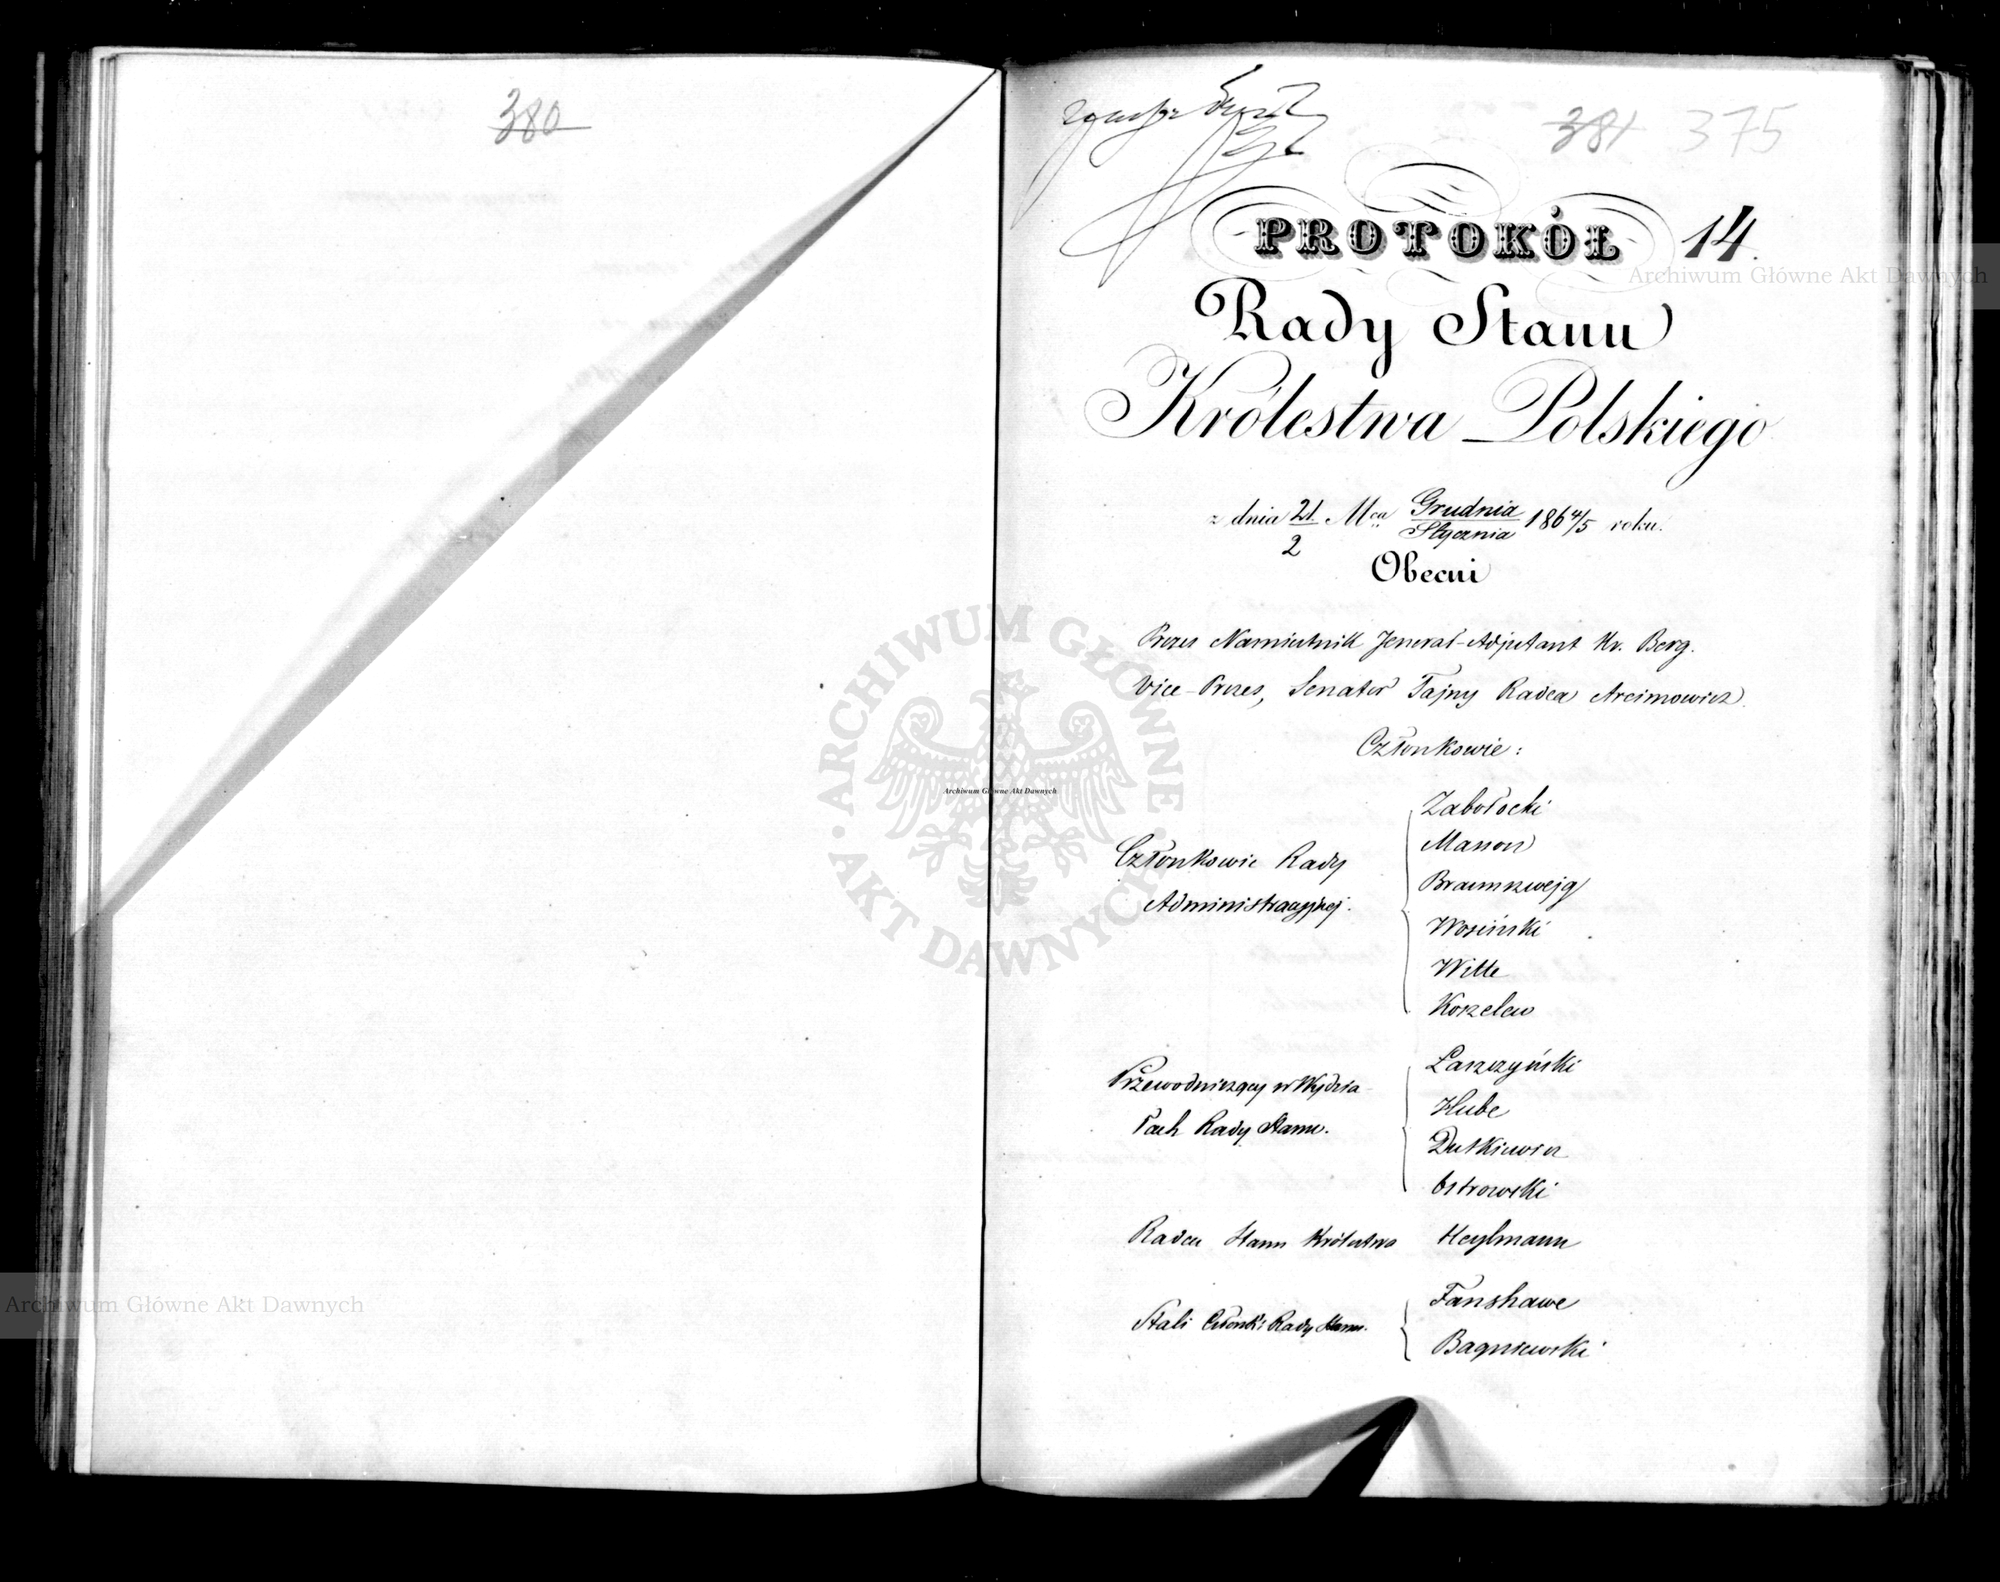 380
381 375
PROTOKÓŁ 14.
Rady Stanu
Królestwa Polskiego
z dnia 21/2 Mca Grudnia/Stycznia 1864/5 roku.
Obecni
Prezes Namiestnik Jenerał-Adjutant Hr. Berg.
Vice-Prezes, Senator Tajny Radca Arcimowicz.
Członkowie:
Członkowie Rady
Administracyjnej.
Zabołocki
Manon
Braunszwejg
Wosiński
Witte
Koszelew
Przewodniczący w Wydzia-
łach Rady Stanu.
Łaszczyński
Hube
Dutkiewicz
Ostrowski
Radca Stanu Królestwa Heylmann
Stali Członki Rady Stanu.
Fanshawe
Bagniewski
Archiwum Główne Akt Dawnych
Archiwum Główne Akt Dawnych
Archiwum Główne Akt Dawnych
ARCHIWUM GŁÓWNE · AKT DAWNYCH ·